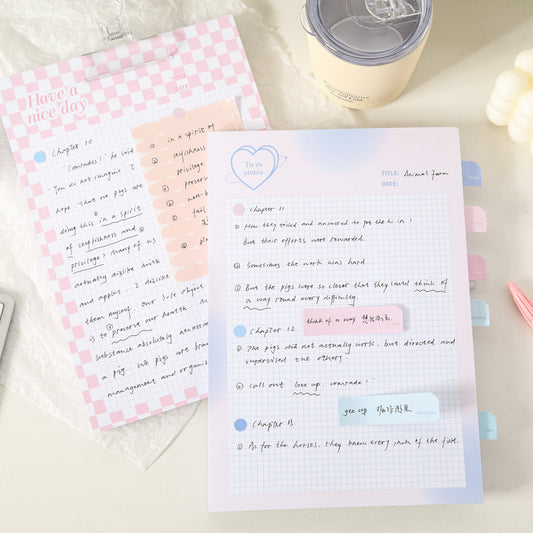 Have a
nice day
TITLE:
DATE:
Chapter 10
'Comrades!' he said
You do not imagine, I
hope, that we pigs are
doing this in a spirit
of selfishness and
privilege? Many of us
actually dislike milk
and apples. I dislike
them myself. Our sole object
is to preserve our health. M
substance absolutely necess
a pig. We pigs are brai
management and organiz
① in a spirit of
② selfishness
privilege
preser
non-b
fail
pl
Tu es
aimée
TITLE: Animal Farm
DATE:
Chapter 11
① How they toiled and answered to get the hi in!
But their efforts were rewarded.
② Sometimes the work was hard.
③ But the pigs were so clever that they could think of
a way round every difficulty.
think of a way 想出办法
Chapter 12
① The pigs did not actually work, but directed and
supervised the others
② call out 'Gee up, comrade!'
gee up
Chapter 13
① As for the horses, they knew every inch of the field,